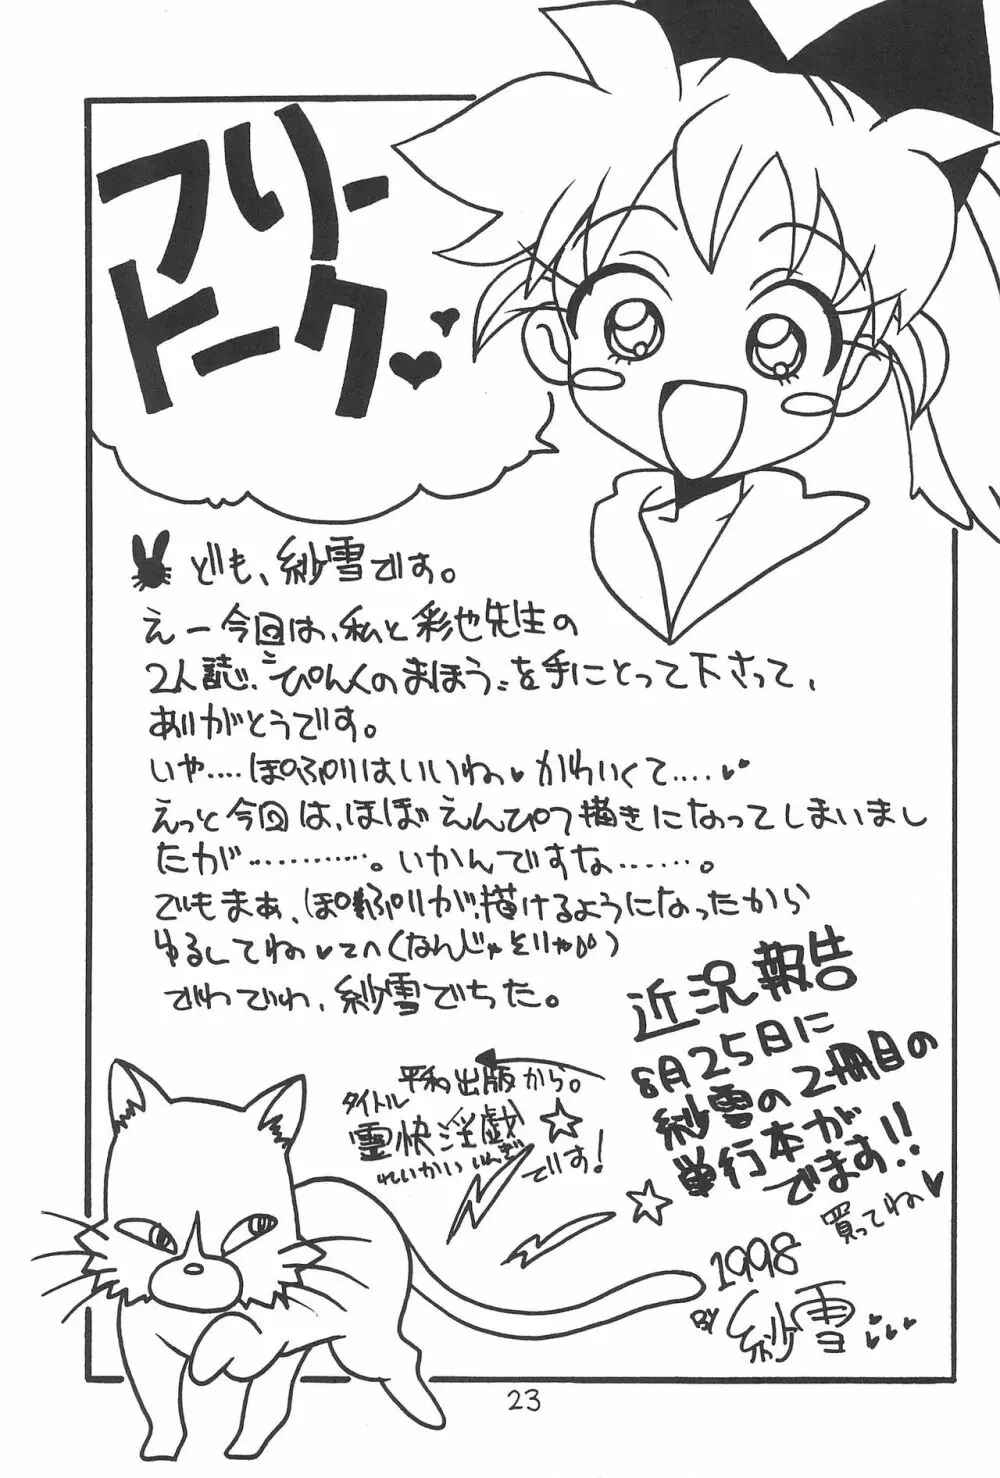 フリー
トーク
ども、紗雪です。
えー今回は、私と彩也先生の
2人誌〝ぴんくのまほう〟を手にとって下さって、
ありがとうです。
いや‥‥ぽぷりはいいね♥かわいくて‥‥♥♥
えっと今回は、ほぼえんぴつ描きになってしまいまし
たが…………。いかんですな………。
でもまぁ、ぽぷりが描けるようになったから
ゆるしてね♥てへ(なんじゃそりゃ)
でわでわ、紗雪でちた。
近況報告
8月25日に
紗雪の2冊目の
単行本が
でます!!
買ってね♥
平和出版から。
タイトル
霊快淫戯
れいかいいんぎ
です!
1998
BY 紗雪
23